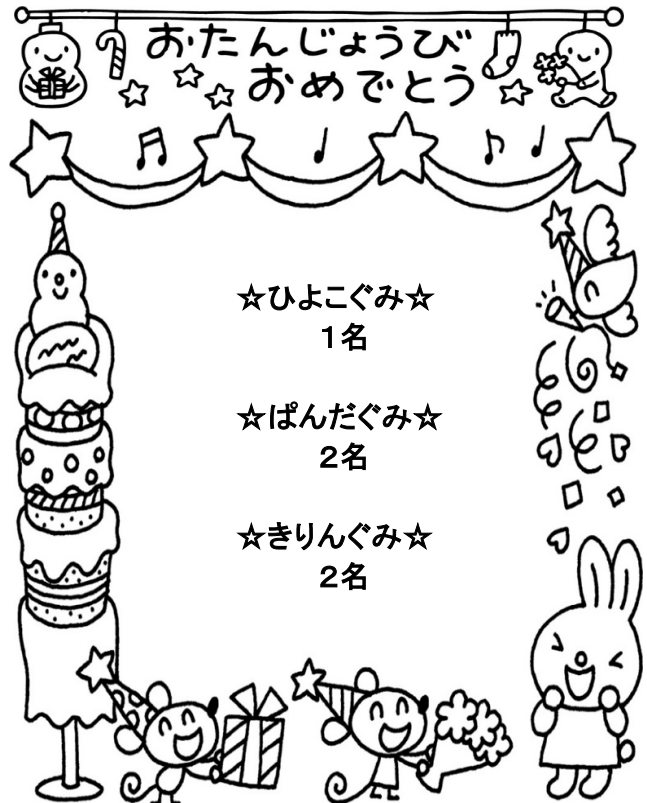 おたんじょうび
おめでとう
☆ひよこぐみ☆
１名
☆ぱんだぐみ☆
２名
☆きりんぐみ☆
２名